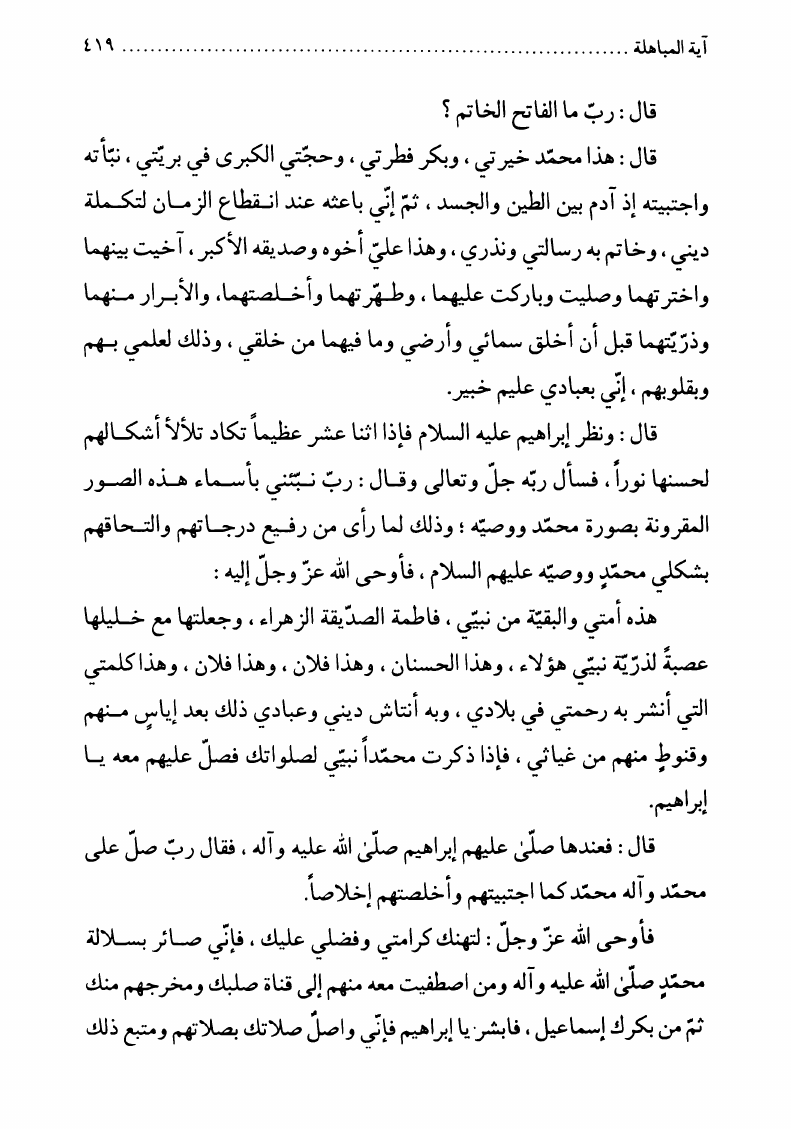 آية المباهلة ................................................................ ٤١٩
قال : ربّ ما الفاتح الخاتم ؟
قال : هذا محمّد خيرتي ، وبكر فطرتي ، وحجّتي الكبرى في بريّتي ، نبّأته
واجتبيته إذ آدم بين الطين والجسد ، ثمّ إنّي باعثه عند انقطاع الزمان لتكملة
ديني ، وخاتم به رسالتي ونذري ، وهذا عليّ أخوه وصديقه الأكبر ، آخيت بينهما
واخترتهما وصليت وباركت عليهما ، وطهّرتهما وأخلصتهما، والأبرار منهما
وذرّيّتهما قبل أن أخلق سمائي وأرضي وما فيهما من خلقي ، وذلك لعلمي بهم
وبقلوبهم ، إنّي بعبادي عليم خبير.
قال : ونظر إبراهيم عليه السلام فإذا اثنا عشر عظيماً تكاد تلألأ أشكالهم
لحسنها نوراً ، فسأل ربّه جلّ وتعالى وقال : ربّ نبّئني بأسماء هذه الصور
المقرونة بصورة محمّد ووصيّه ؛ وذلك لما رأى من رفيع درجاتهم والتحاقهم
بشكلي محمّدٍ ووصيّه عليهم السلام ، فأوحى الله عزّ وجلّ إليه :
هذه أمتي والبقيّة من نبيّي ، فاطمة الصدّيقة الزهراء ، وجعلتها مع خليلها
عصبةً لذرّيّة نبيّي هؤلاء ، وهذا الحسنان ، وهذا فلان ، وهذا فلان ، وهذا كلمتي
التي أنشر به رحمتي في بلادي ، وبه أنتاش ديني وعبادي ذلك بعد إياسٍ منهم
وقنوطٍ منهم من غياثي ، فإذا ذكرت محمّداً نبيّي لصلواتك فصلّ عليهم معه يا
إبراهيم.
قال : فعندها صلّى عليهم إبراهيم صلّى الله عليه وآله ، فقال ربّ صلّ على
محمّد وآله محمّد كما اجتبيتهم وأخلصتهم إخلاصاً.
فأوحى الله عزّ وجلّ : لتهنك كرامتي وفضلي عليك ، فإنّي صائر بسلالة
محمّدٍ صلّى الله عليه وآله ومن اصطفيت معه منهم إلى قناة صلبك ومخرجهم منك
ثمّ من بكرك إسماعيل ، فابشر يا إبراهيم فإنّي واصلٌ صلاتك بصلاتهم ومتبع ذلك